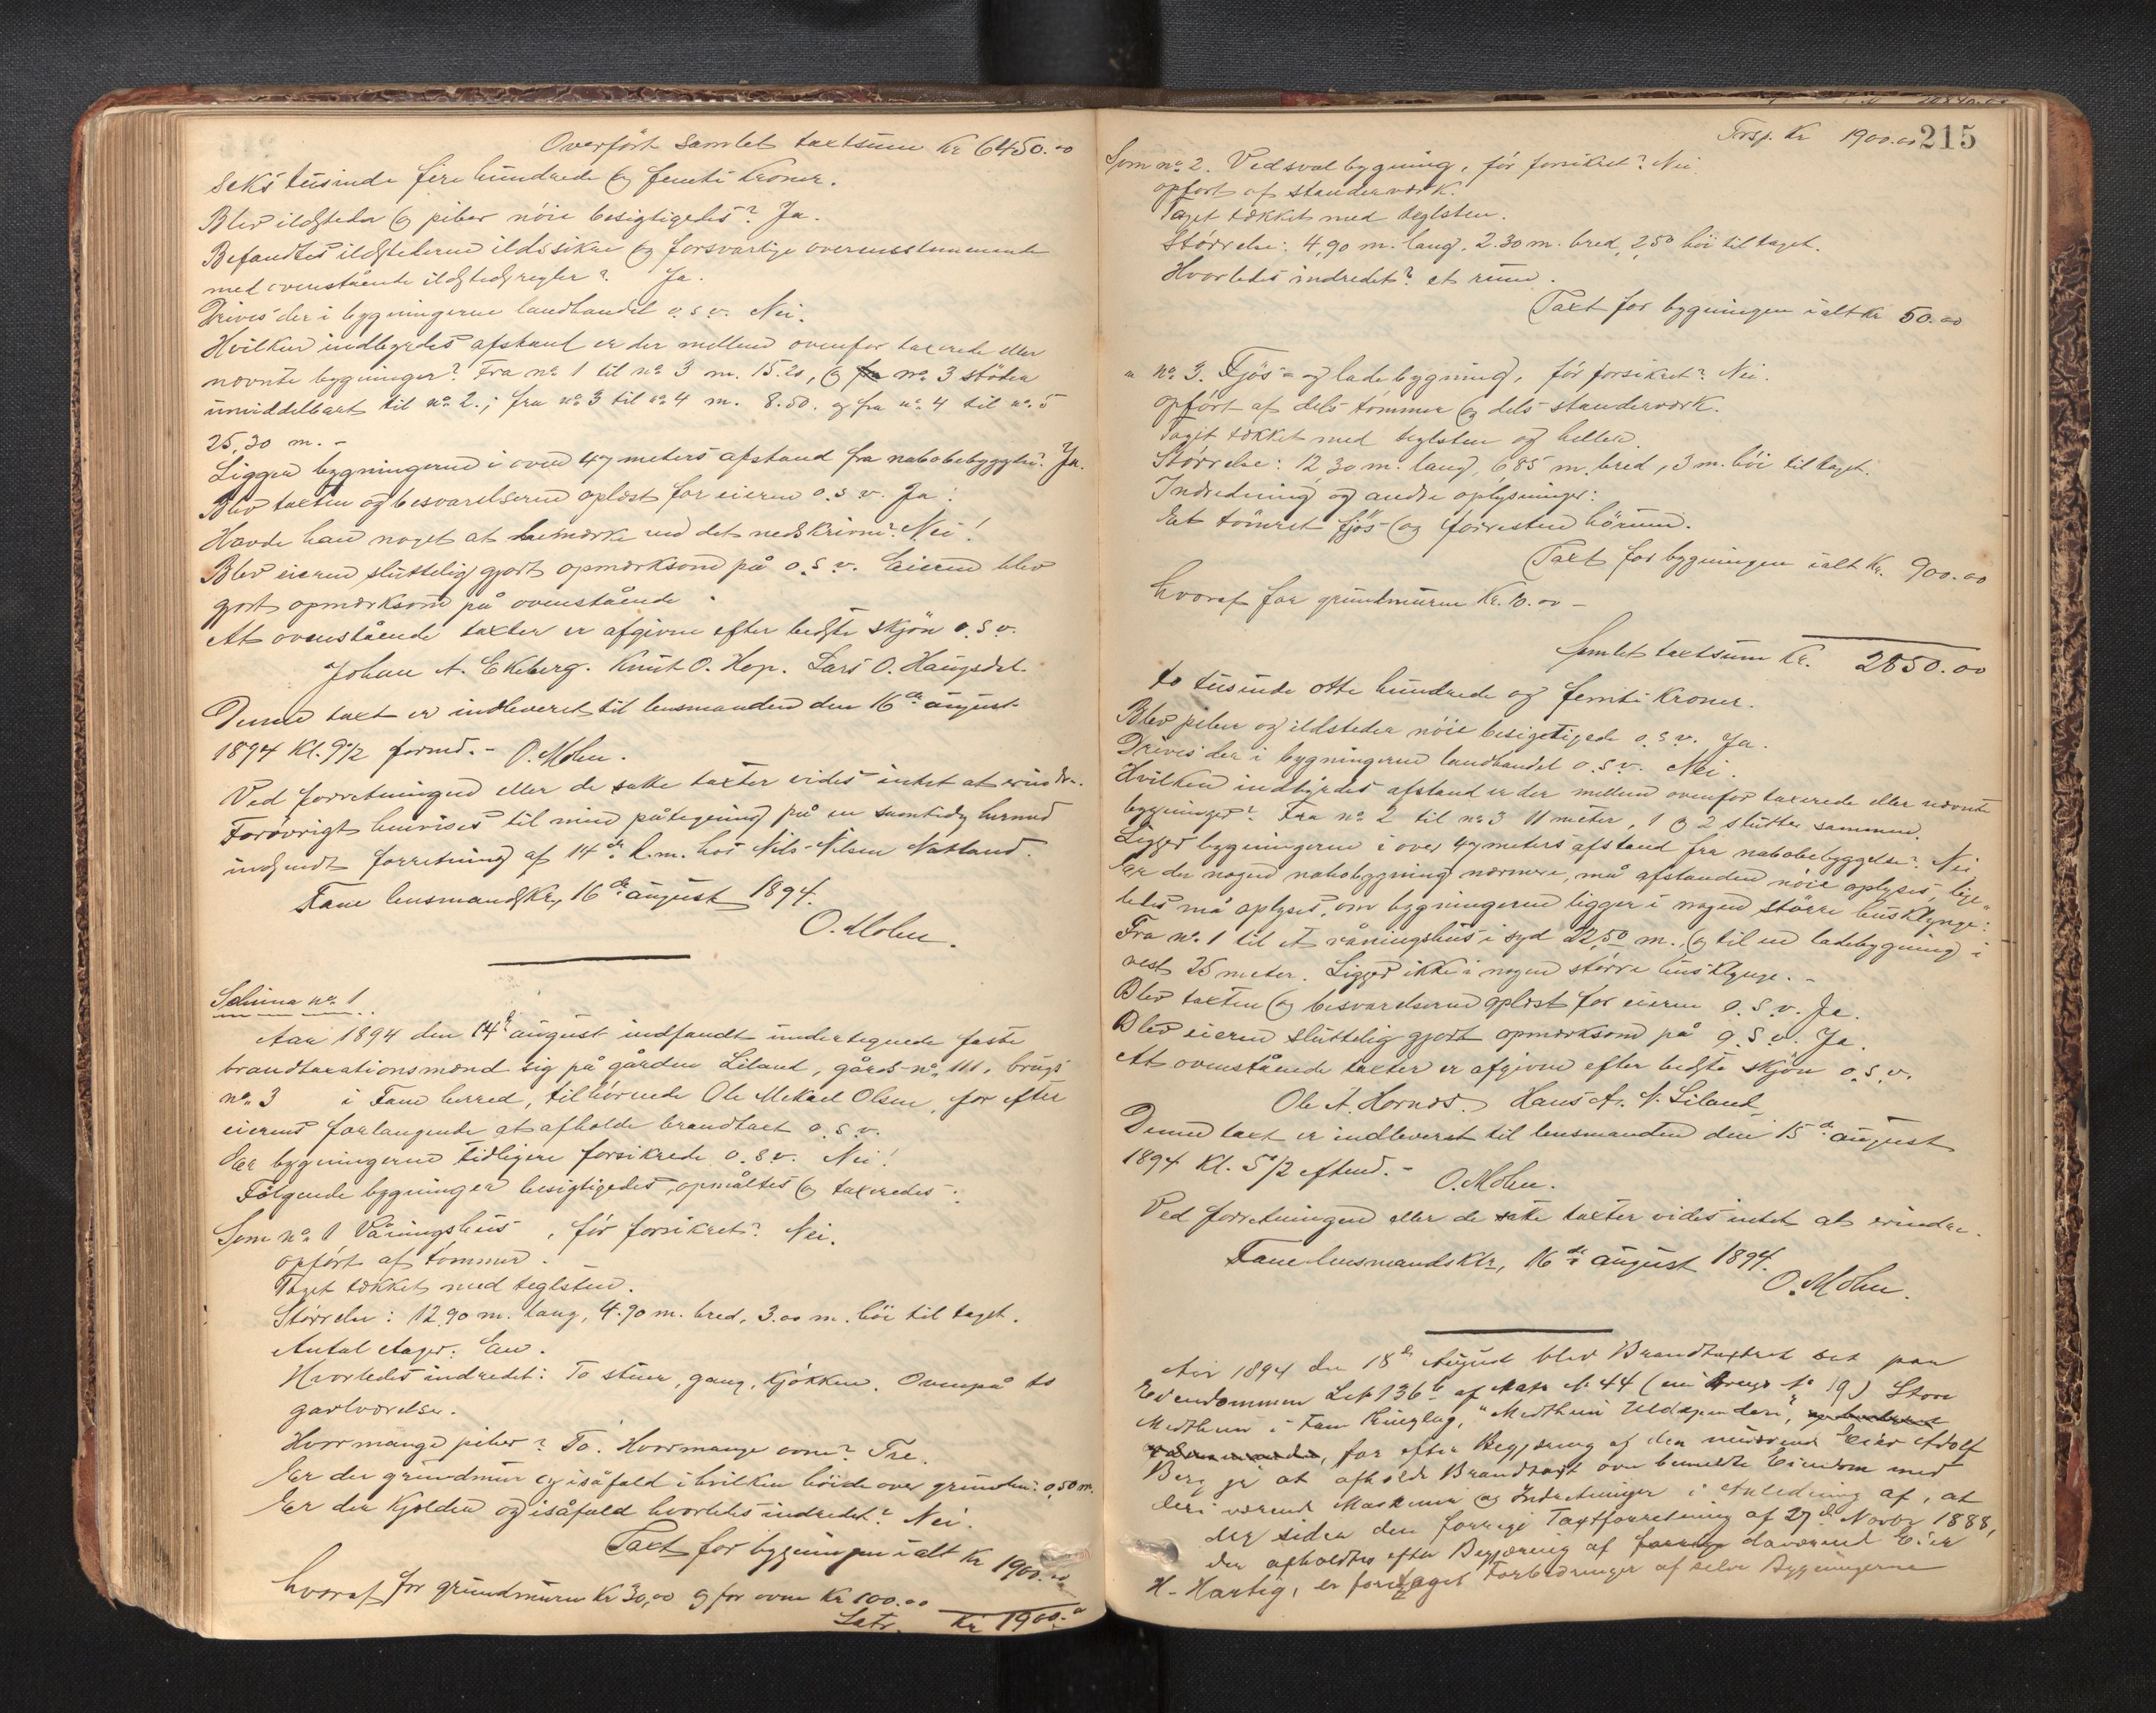 Overført samlet taxtsum Kr 6450.00
seks tusinde fire hundrede og femti Kroner.
Blev ildsteder og piber nöie besigtigedes? Ja.
Befandtes ildstederne ildsikre og forsvarlige overensstemmende
med ovenstående ildstedsregler? Ja.
Drives der i bygningerne landhandel o.s.v. Nei.
Hvilken indbyrdes afstand er der mellem ovenfor taxerede eller
nævnte bygninger? Fra no 1 til no 3 m. 15.20, og fra no 3 stöder
umiddelbart til no 2.; fra no 3 til no 4 m. 8.50. og fra no 4 til no 5
25,30 m. -
Ligger bygningerne i over 47 meters afstand fra nabobebyggelse? Ja.
Blev taxten og besvarelserne oplæst for eieren o.s.v. Ja!
Havde han noget at bemærke ved det nedskrevne? Nei!
Blev eieren sluttelig gjort opmærksom på o.s.v. Eieren blev
gjort opmærksom på ovenstående.
At ovenstående taxter er afgivne efter bedste skjön o.s.v.
Johan A. Ekeberg. Knut O. Hop. Lars O. Haugsdal.
Denne taxt er indleveret til lensmanden den 16de august
1894 Kl. 9 1/2 formd. - O. Mohn.
Ved forretningen eller de satte taxter vides intet at erindre.
Forövrigt henvises til min påtegning på en samtidig hermed
indsendt forretning af 14de d.m. hos Nils Nilsen Natland.
Fane lensmandskr, 16de august 1894.
O. Mohn.
Schema no. 1.
Aar 1894 den 14de august indfandt undertegnede faste
brandtaxationsmænd sig på gården Liland, gårds-no. 111, brugs
no. 3 i Fane herred, tilhörende Ole Mikael Olsen, for efter
eierens forlangende at afholde brandtaxt o.s.v.
Er bygningerne tidligere forsikrede o.s.v. Nei!
Fölgende bygninger besigtigedes, opmåltes og taxeredes:
Som no 1 Våningshus, för forsikret? Nei.
opfört af tömmer.
Taget tækket med teglsten.
Störrelse: 12.90 m. lang, 4.90 m. bred, 3.00 m. höi til taget.
Antal etager: En.
Hvorledes indredet: To stuer, gang, kjökken. Ovenpå to
gavlværelser.
Hvor mange piber? To. Hvor mange ovne? Tre.
Er der grundmur og isåfald i hvilken höide over grunden: 0,50 m.
Er der Kjelder og isåfald hvorledes indredet? Nei.
Taxt for bygningen ialt Kr 1900.00
hvoraf for grundmuren Kr 30,00 og for ovne Kr 100.00
Latr. Kr 1900.00
Trsp. Kr 1900.00 215
Som no. 2. Vedsvalbygning, för forsikret? Nei.
opfört af standerværk.
Taget tækket med teglsten.
Störrelse: 4,90 m. lang, 2.30 m. bred, 2,50 höi til taget.
Hvorledes indredet? et rum.
Taxt for bygningen ialt Kr 50.00
" no. 3. Fjös- og ladebygning, för forsikret? Nei.
opfört af dels tömmer og dels standerværk.
Taget tækket med teglsten og heller.
Störrelse: 12,30 m. lang, 6,85 m. bred, 3 m. höi til taget.
Indredning og andre oplysninger:
Et tömret fjös og forresten hörum.
Taxt for bygningen ialt Kr. 900.00
hvoraf for grundmuren Kr. 10.00 -
Samlet taxtsum Kr. 2850.00
to tusinde otte hundrede og femti Kroner.
Blev piber og ildsteder nöie besigtigede o.s.v. Ja.
Drives der i bygningerne landhandel o.s.v. Nei.
Hvilken indbyrdes afstand er der mellem ovenfor taxerede eller nævnte
bygninger? Fra no 2 til no 3 11 meter, 1 og 2 slutter sammen.
Ligger bygningerne i over 47 meters afstand fra nabobebyggelse? Nei
Er der nogen nabobygning nærmere, må afstanden nöie oplyses, lige"
ledes må oplyses, om bygningerne ligger i nogen större husklynge:
Fra no. 1 til et våningshus i syd 22,50 m., og til en ladebygning i
vest 25 meter. Ligger ikke i nogen större husklynge. -
Blev taxten og besvarelserne oplæst for eieren o.s.v. Ja.
Blev eieren sluttelig gjort opmærksom på o.s.v. Ja.
At ovenstående taxter er afgivne efter bedste skjön o.s.v.
Ole A. Hornæs. Hans A. N. Liland
Denne taxt er indleveret til lensmanden den 15de august
1894 Kl. 5 1/2 eftmd. - O. Mohn.
Ved forretningen eller de satte taxter vides intet at erindre.
Fane lensmandsktr, 16de august 1894.
O. Mohn.
Aar 1894 den 18de August blev Brandtaxtret sat paa
Eiendommen Løb 136b af Matr No 44 (nu Brugs No 19) Store
Midthun i Fane Thinglag, "Midthun Uldspinderi",
for efter Begjæring af den nuværende Eier Adolf
Berg jr at afholde Brandtaxt over bemeldte Eiendom med
deri værende Maskiner og Indretninger i Anledning af, at
der siden den forrige Taxtforretning af 27de Novbr 1888,
der afholdtes efter Begjæring af daværende Eier
H. Hartig, er foretaget Forbedringer af selve Bygningerne